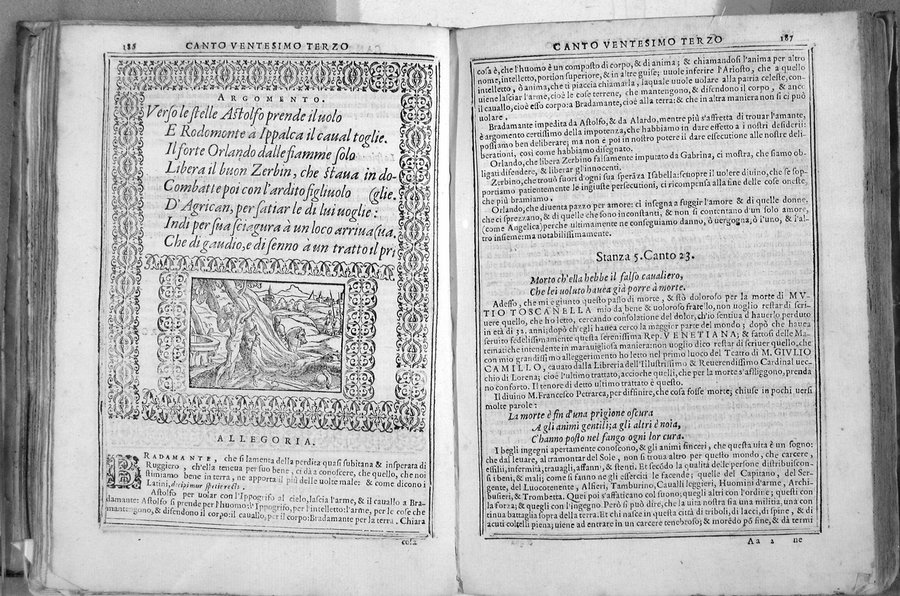 186
CANTO VENTESIMO TERZO
ARGOMENTO.
Verso le stelle Astolfo prende il uolo
E Rodomonte a Ippalca il caual toglie.
Il forte Orlando dalle fiamme solo
Libera il buon Zerbin, che staua in do-
Combatte poi con l'ardito figliuolo (glie.
D'Agrican, per satiar le di lui uoglie:
Indi per sua sciagura à un loco arriua sua.
Che di gaudio, e di senno à un tratto il pri
ALLEGORIA.
BRADAMANTE, che si lamenta della perdita quasi subitana & insperata di
Ruggiero, ch'ella teneua per suo bene, ci dà a conoscere, che quello, che noi
stimiamo bene in terra, ne apporta il più delle uolte male: & come dicono i
Latini, decipimur specie recti.
Astolfo per uolar con l'Ippogrifo al cielo, lascia l'arme, & il cauallo a Bra-
damante: Astolfo si prende per l'huomo: l'Ippogrifo, per l'intelletto: l'arme, per le cose che
mantengono, & difendono il corpo: il cauallo, per il corpo: Bradamante per la terra. Chiara
cosa
CANTO VENTESIMO TERZO
187
cosa è, che l'huomo è un composto di corpo, & di anima; & chiamandosi l'anima per altro
nome, intelletto, portion superiore, & in altre guise; uuole inferire l'Ariosto, che a quello
intelletto, ò anima, che ti piaccia chiamarla, laquale uuole uolare alla patria celeste, con-
uiene lasciar l'arme, cioè le cose terrene, che mantengono, & difendono il corpo, & anco
il cauallo, cioè esso corpo: a Bradamante, cioè alla terra: & che in altra maniera non si ci può
uolare.
Bradamante impedita da Astolfo, & da Alardo, mentre più s'affretta di trouar l'amante,
è argomento certissimo della impotenza, che habbiamo in dare effetto a i nostri desiderii:
possiamo ben deliberare; ma non è poi in nostro potere il dare essecutione alle nostre deli-
berationi, così come habbiamo disegnato.
Orlando, che libera Zerbino falsamente imputato da Gabrina, ci mostra, che siamo ob-
ligati difendere, & liberar gl'innocenti.
Zerbino, che trouò fuori d'ogni sua speráza Isabella: scuopre il uolere diuino, che se sop-
portiamo patientemente le ingiuste persecutioni, ci ricompensa alla fine delle cose oneste,
che più bramiamo.
Orlando, che diuenta pazzo per amore: ci insegna a fuggir l'amore & di quelle donne,
che ci sprezzano, & di quelle che sono inconstanti, & non si contentano d'un solo amore,
(come Angelica) perche ultimamente ne conseguiamo danno, ò uergogna, ò l'uno, & l'al-
tro insieme: ma notabilissimamente.
Stanza 5. Canto 23.
Morto ch'ella hebbe il falso caualiero,
Che lei uoluto hauea già porre à morte.
Adesso, che mi è giunto questo passo di morte, & stò doloroso per la morte di MV-
TIO TOSCANELLA mio da bene & uoloroso fratello, non uoglio restar di scri-
uere quello, che ho letto, cercando consolatione del dolor, ch'io sentiua d'hauerlo perduto
in età di 32. anni; dopò ch'egli hauea cerco la maggior parte del mondo; dopò che hauea
seruito fedelissimamente questa serenissima Rep. VENETIANA; & fattosi delle Ma-
tematiche intendente in marauigliosa maniera: non uoglio dico restar di scriuer quello, che
con mio grandissimo alleggerimento ho letto nel primo luoco del Teatro di M. GIVLIO
CAMILLO, cauato dalla Libreria dell'Illustrissimo & Reuerendissimo Cardinal uec-
chio di Lorena; cioè l'ultimo trattato, acciòche quelli, che per la morte s'affliggono, prenda
no conforto. Il tenore di detto ultimo trattato è questo.
Il diuino M. Francesco Petrarca, per diffinire, che cosa fosse morte; chiuse in pochi uersi
molte parole:
La morte è fin d'una prigione oscura
A gli animi gentili; a gli altri è noia,
C'hanno posto nel fango ogni lor cura.
I begli ingegni apertamente conoscono, & gli animi sinceri, che questa uita è un sogno:
che dal leuare, al tramontar del Sole, non si troua altro per questo mondo, che carcere,
essilii, infermità, trauagli, affanni, & stenti. Et secódo la qualità delle persone distribuiscon-
si i beni, & mali; come si fanno ne gli eserciti le facende; quelle del Capitano, del Ser-
gente, del Luocotenente, Alfieri, Tamburino, Caualli leggieri, Huomini d'arme, Archi-
busieri, & Trombetta. Quei poi s'affaticano col suono; quegli altri con l'ordine; questi con
la forza; & quegli con l'ingegno. Però si può dire, che la uita nostra sia una militia, una con
tinua battaglia sopra della terra. Et chi nasce in questa città di triboli, di lacci, di spine, & di
acuti coltelli piena; uiene ad entrare in un carcere tenebroso; & morédo pó fine, & dà termi
Aa 2 ne